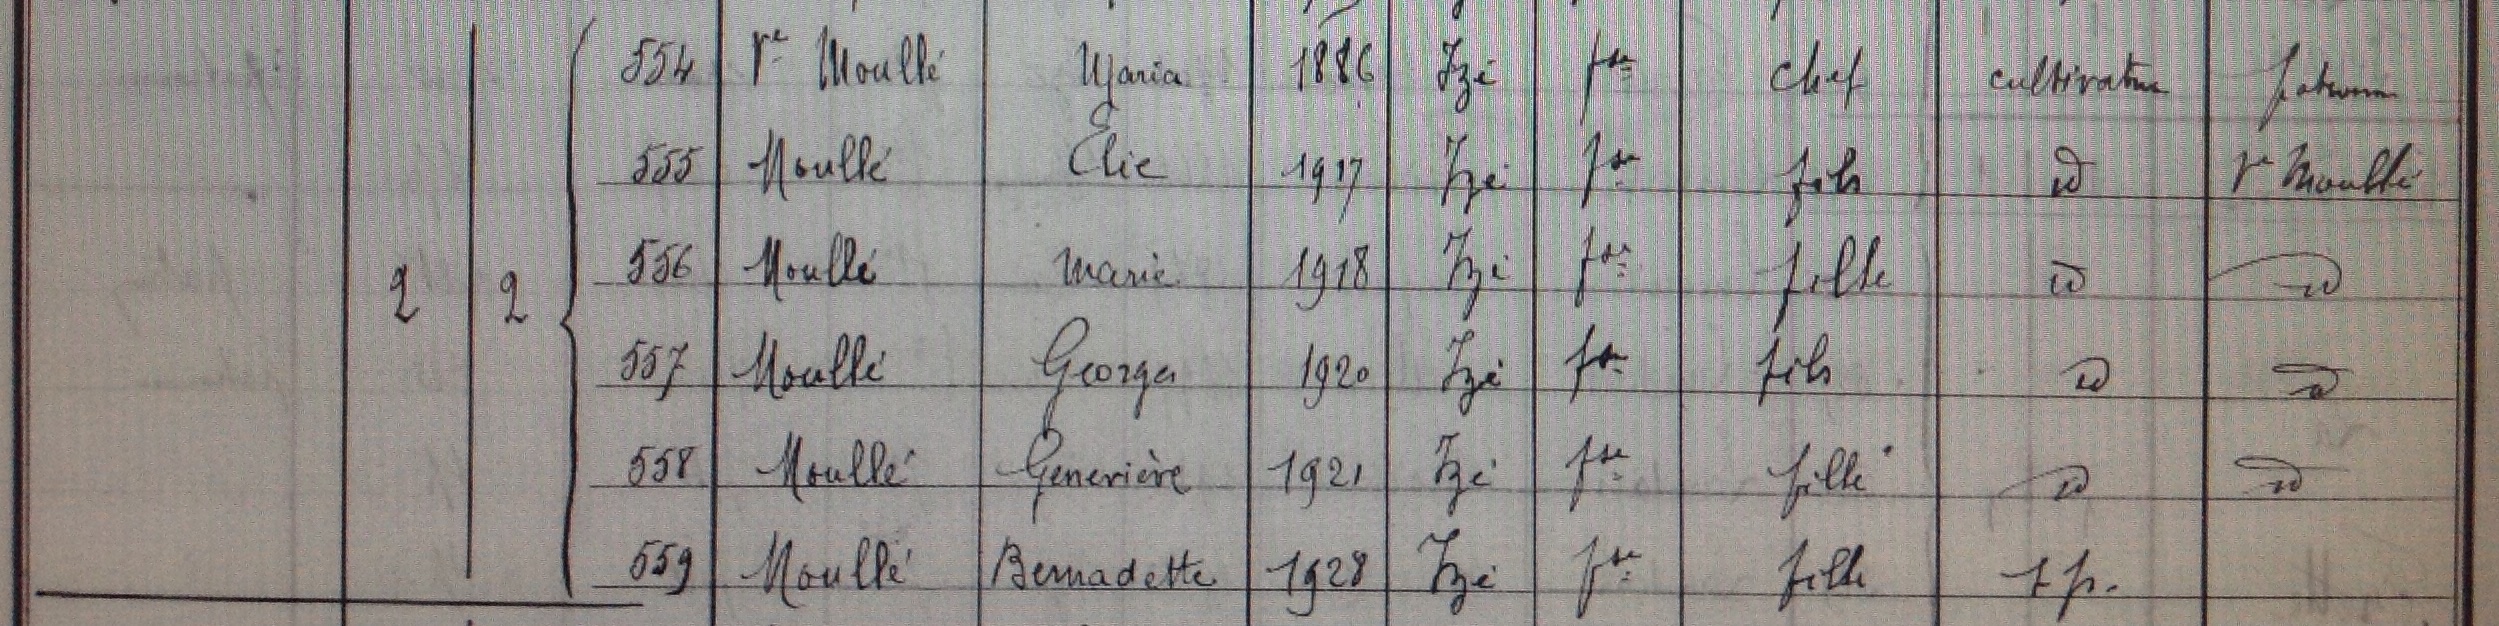 554 Vᵉ Moullé Maria 1886 Izé fse Chef cultivatrice patronne
555 Moullé Élie 1917 Izé fse fils id Vᵉ Moullé
556 Moullé Marie 1918 Izé fse fille id id
2 2
557 Moullé Georges 1920 Izé fse fils id id
558 Moullé Geneviève 1921 Izé fse fille id id
559 Moullé Bernadette 1928 Izé fse fille s.p.